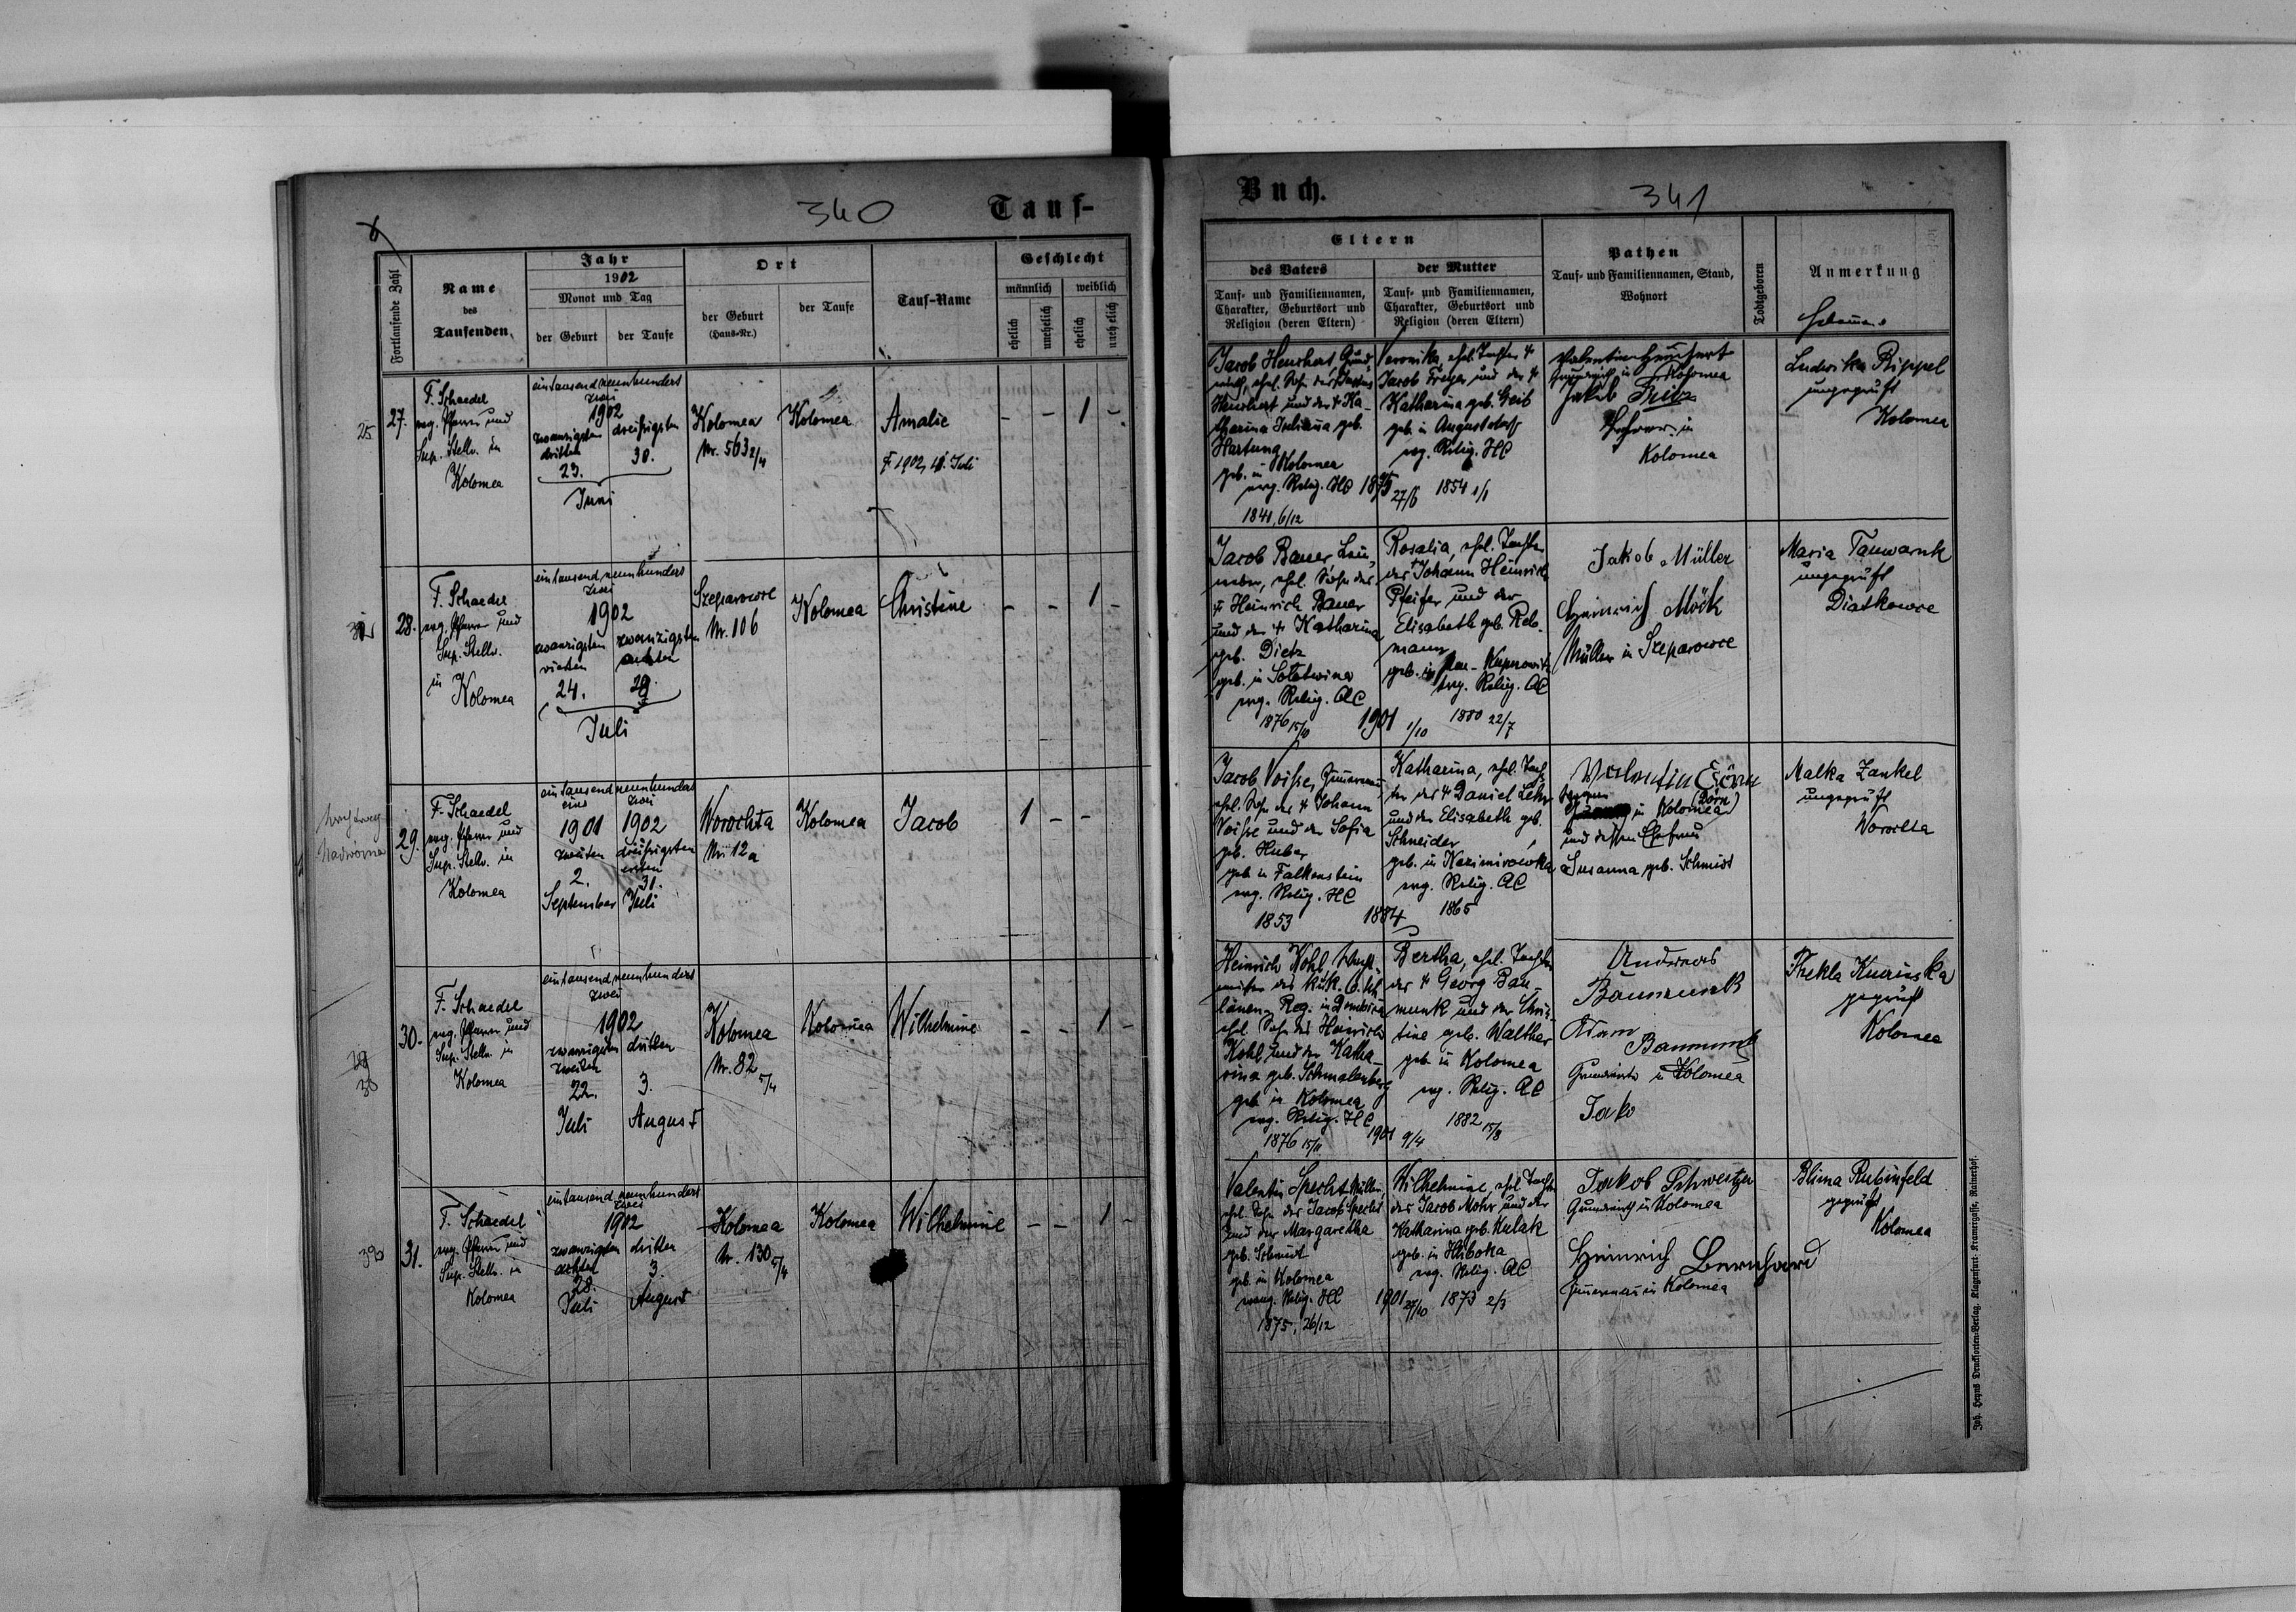 340
Tauf-
Fortlaufende Zahl
Name
des
Taufenden
Jahr
1902
Monat und Tag
der Geburt
der Taufe
Ort
der Geburt
(Haus-Nr.)
der Taufe
Tauf-Name
Geschlecht
männlich
weiblich
ehelich
unehelich
ehelich
unehelich
25
27.
F. Schaedel
evg. Pfarrer und
Sup. Stellv. in
Kolomea
eintausendneunhundert
zwei
1902
zwanzigsten dreißigsten
dritten
23. 30.
Juni
Kolomea
Nr. 563 2/4
Kolomea
Amalie
† 1902, 18. Juli
- - 1 -
28.
F. Schaedel
evg. Pfarrer und
Sup. Stellv.
in
Kolomea
eintausendneunhundert
zwei
1902
zwanzigsten zwanzigsten
vierten achten
24. 28.
Juli
Szeparowce
Nr. 106
Kolomea
Christine
- - 1 -
Nadworna
29.
F. Schaedel
evg. Pfarrer und
Sup. Stellv. in
Kolomea
eintausendneunhundert
eins zwei
1901 1902
zweiten dreißigsten
ersten
2. 31.
September Juli
Worochta
Nr. 12a
Kolomea
Jacob
1 - -
38
30.
F. Schaedel
evg. Pfarrer und
Sup. Stellv. in
Kolomea
eintausendneunhundert
zwei
1902
zwanzigsten dritten
zweiten
22. 3.
Juli August
Kolomea
Nr. 82 5/4
Kolomea
Wilhelmine
- - 1 -
31.
F. Schaedel
evg. Pfarrer und
Sup. Stellv. in
Kolomea
eintausendneunhundert
zwei
1902
zwanzigsten dritten
achten 3.
28.
Juli August
Kolomea
Nr. 130 5/4
Kolomea
Wilhelmine
- - 1 -
Buch.
341
Eltern
des Vaters
der Mutter
Tauf- und Familiennamen,
Charakter, Geburtsort und
Religion (deren Eltern)
Tauf- und Familiennamen,
Charakter, Geburtsort und
Religion (deren Eltern)
Pathen
Tauf- und Familiennamen, Stand,
Wohnort
Todtgeboren
Anmerkung
Hebamme
Jacob Heuchert Grund-
wirth, ehel. Sohn des † Justus
Heuchert und der † Ka-
tharina Juliana geb.
Hartung
geb. in Kolomea
evg. Relig. HC
1841, 6/12
1875 27/6
Veronika, ehel. Tochter d. †
Jacob Freyer und der †
Katharina geb. Geib
geb. in Augustdorf
evg. Relig. HC
1854 1/1
Valentin Heuchert
Grundwirth in Kolomea
Jakob Fritz
Lehrer in
Kolomea
Ludwika Rippel
ungeprüft
Kolomea
Jacob Bauer
ehel. Sohn des
† Heinrich Bauer
und der † Katharina
geb. Dietz
geb. in Solotwina
evg. Relig. AC
1876 15/10
1901 1/10
Rosalia, ehel. Tochter
des Johann Heinrich
Pfeifer und der
Elisabeth geb. Reb-
mann
evg. Relig. AC
1880 22/7
Jakob Müller
Heinrich Möck
Müller in Szeparowce
Maria Tauwank
ungeprüft
Diatkowce
Jacob Voisse, Zimmermann,
ehel. Sohn des † Johann
Voisse und der Sofia
geb. Huber
geb. in Falkenstein
evg. Relig. HC
1853
1884
Katharina, ehel. Toch-
ter des † Daniel Lehr
und der Elisabeth geb.
Schneider
geb. in Kazimirowka
evg. Relig. AC
1865
Valentin Dörn
(Dörn)
in Kolomea
und dessen Ehefrau
Susanna geb. Schmidt
Malka Zankel
ungeprüft
Worochta
Heinrich Kohl,
ehel. Sohn des Heinrich
Kohl und der Katha-
rina geb. Schmalenberg
geb. in Kolomea
evg. Relig. HC
1876 15/11
1901 9/4
Bertha, ehel. Tochter
des † Georg Bau-
munk und der Chris-
tine geb. Walther
geb. in Kolomea
evg. Relig. AC
1882 15/8
Andreas
Baumunk
Adam
Baumunk
Grundwirte in Kolomea
Jako
Thekla Kurinska
geprüft
Kolomea
Valentin Specht Müller,
ehel. Sohn des Jacob Specht
und der Margaretha
geb. Schmidt
geb. in Kolomea
evang. Relig. HC
1875, 26/12
1901 28/10
Wilhelmine, ehel. Tochter
des Jacob Mohr und der
Katharina geb. Kulak
geb. in Hliboka
evg. Relig. AC
1873 2/3
Jakob Schweitzer
Grundwirth in Kolomea
Heinrich Bernhard
Zimmermann in Kolomea
Blima Rubinfeld
geprüft
Kolomea
Joh. Heyns Drucksorten-Verlag, Klagenfurt, Kramergasse, Rainerhof.